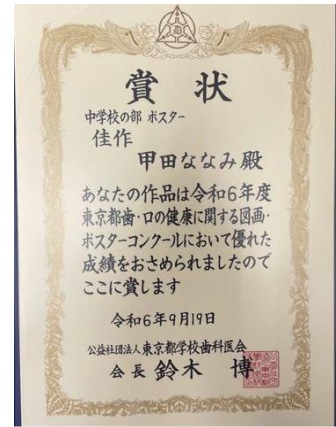 賞状
中学校の部 ポスター
佳作
甲田ななみ殿
あなたの作品は令和6年度
東京都歯・口の健康に関する図画・
ポスターコンクールにおいて優れた
成績をおさめられましたので
ここに賞します
令和6年9月19日
公益社団法人東京都学校歯科医会
会長 鈴木 博